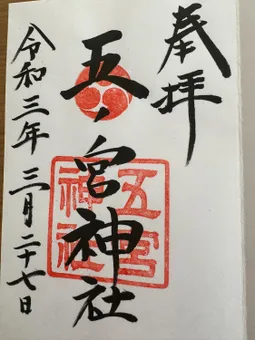 奉拝
五ノ宮神社
五宮神社
令和三年三月二十七日